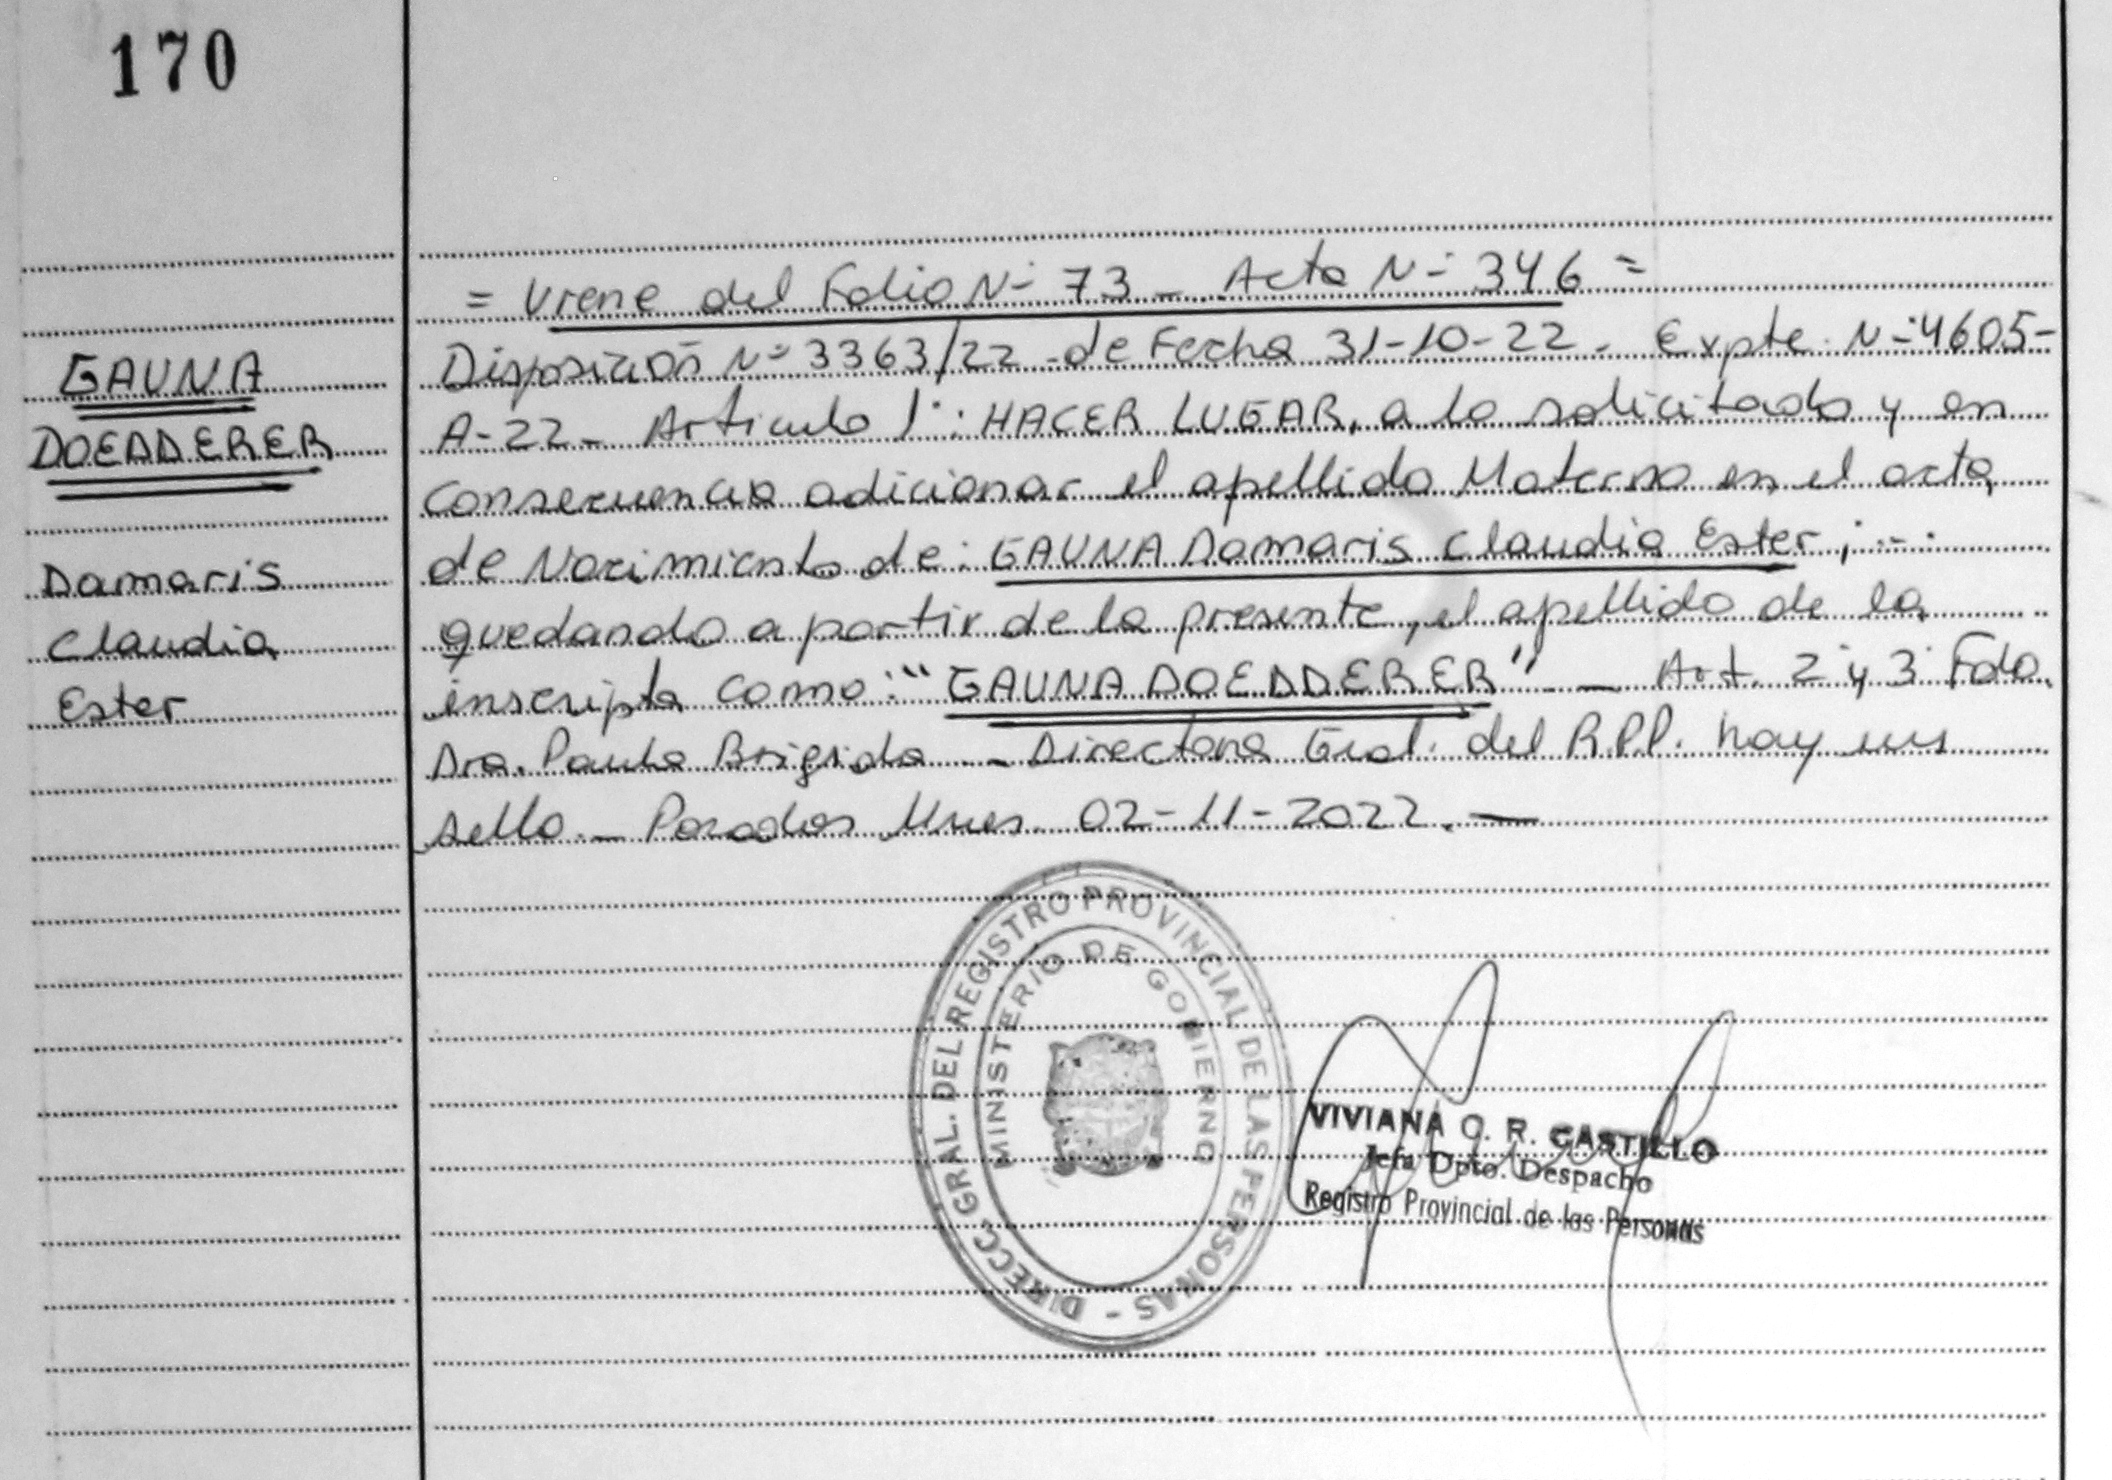 170
= Viene del Folio N- 73 - Acta N- 346 =
GAUNA
DOEDDERER
Damaris
Claudia
Ester
Disposición N° 3363/22 - de Fecha 31-10-22 - Expte. N-:4605-
A-22 - Articulo 1°: HACER LUGAR, a lo solicitado y en
consecuencia adicionar el apellido Materno en el acta
de Nacimiento de: GAUNA Damaris Claudia Ester ; - - .
quedando a partir de la presente, el apellido de la
inscripta como: "GAUNA DOEDDERER" - Art. 2 y 3 Fdo.
Dra. Paula Brigida - Directora Gral. del R.P.P. hay un
sello. - Posadas Mnes. 02-11-2022. -
DIRECC. GRAL. DEL REGISTRO PROVINCIAL DE LAS PERSONAS -
MINISTERIO DE GOBIERNO
VIVIANA C. R. CASTILLO
Jefa Dpto. Despacho
Registro Provincial de las Personas